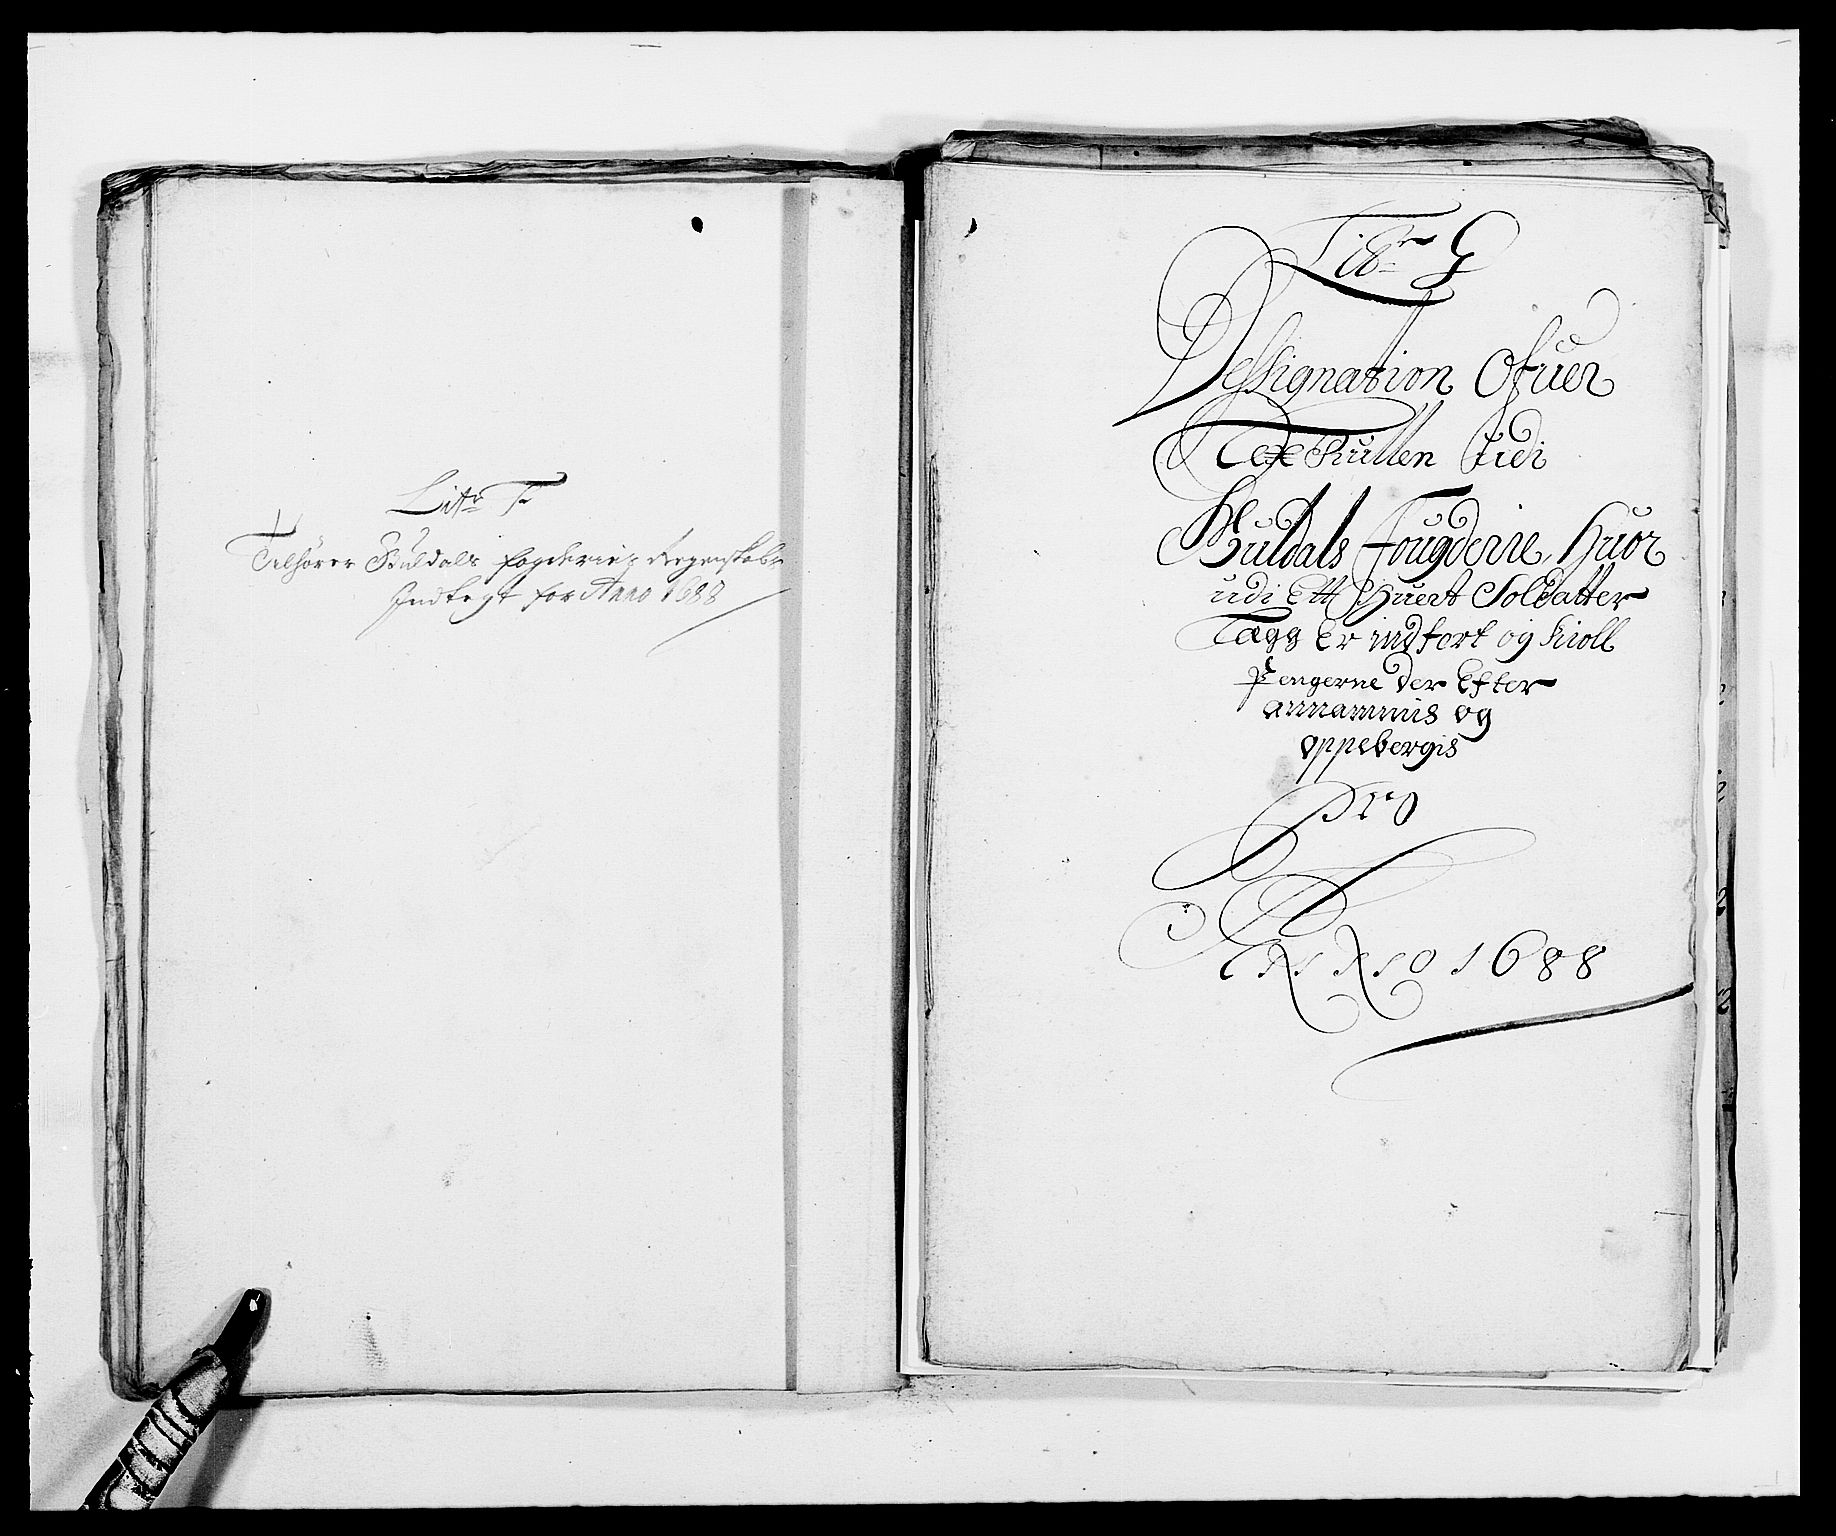 Litr F
Tilhörer Buldals fogderies Regenskabs
Indtegt for Anno 1688
Litr G
Dessignation Ofuer
Lexe Rullen Udi
Buldals Fougderie, Huor
udi Ett Huert Soldatter
Lægg Er indfört og Knoll
Pengerne der Efter
annammis og
oppebergis
Pro
ANNO 1688